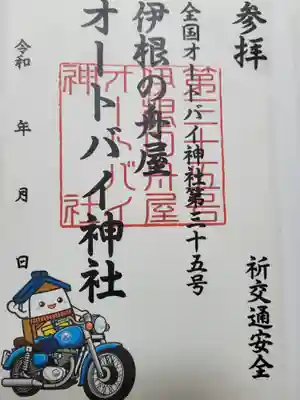 参拝
全国オートバイ神社第三十五号
伊根の舟屋
オートバイ神社
令和 年 月 日
祈交通安全
第三十五号
伊根の舟屋
オートバイ
神社